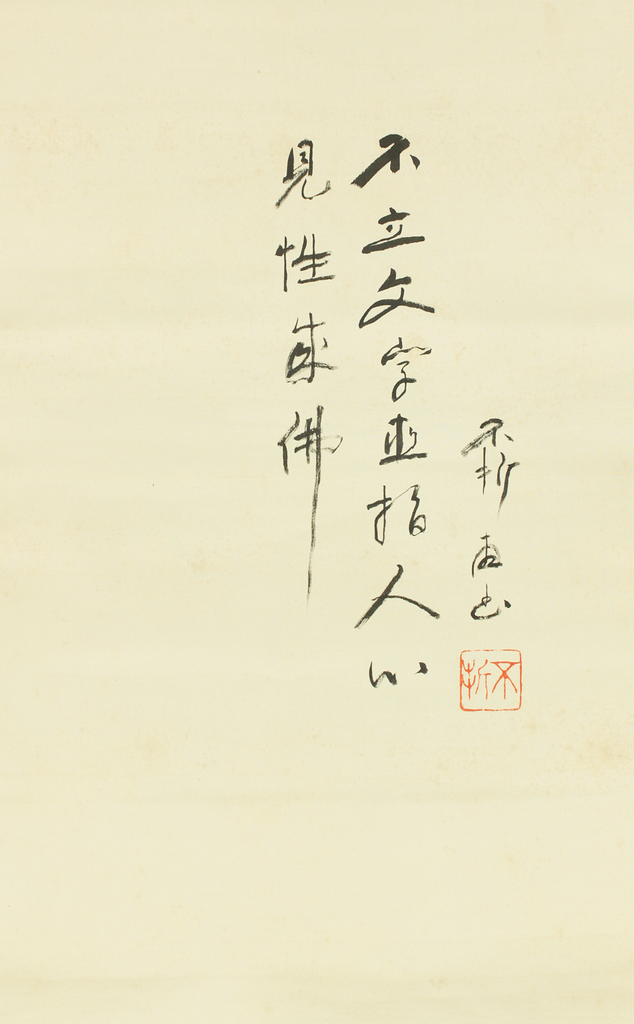 不折
不立文字直指人心
見性成佛
不折